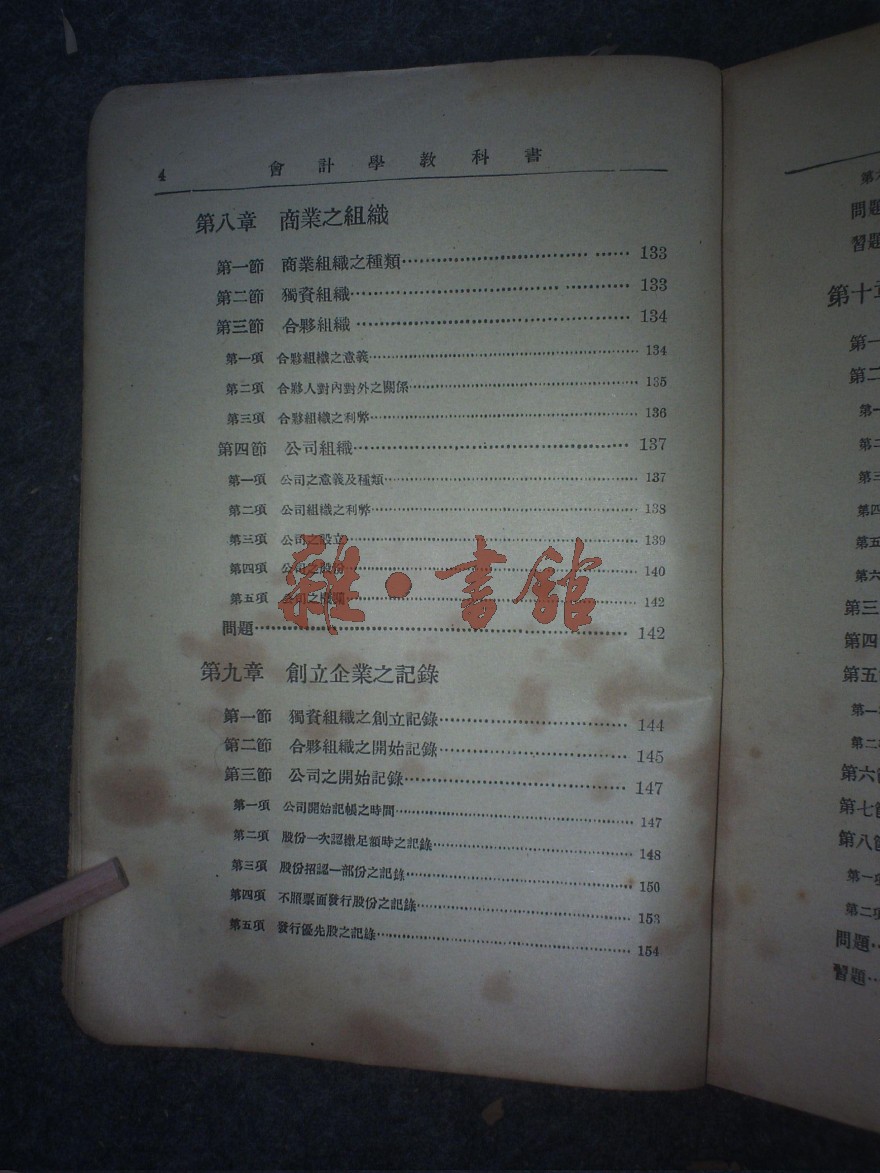 4 會計學教科書
第八章 商業之組織
第一節 商業組織之種類 133
第二節 獨資組織 133
第三節 合夥組織 134
第一項 合夥組織之意義 134
第二項 合夥人對內對外之關係 135
第三項 合夥組織之利弊 136
第四節 公司組織 137
第一項 公司之意義及種類 137
第二項 公司組織之利弊 138
第三項 公司之設立 139
第四項 公司之股份 140
第五項 公司之機關 142
雜·書館
問題 142
第九章 創立企業之記錄
第一節 獨資組織之創立記錄 144
第二節 合夥組織之開始記錄 145
第三節 公司之開始記錄 147
第一項 公司開始記帳之時間 147
第二項 股份一次認繳足額時之記錄 148
第三項 股份招認一部份之記錄 150
第四項 不照票面發行股份之記錄 153
第五項 發行優先股之記錄 154
問題
習題
第十
第一
第二
第一
第二
第三
第四
第五
第六
第三
第四
第五
第一
第二
第六節
第七節
第八節
第一項
第二項
問題
習題